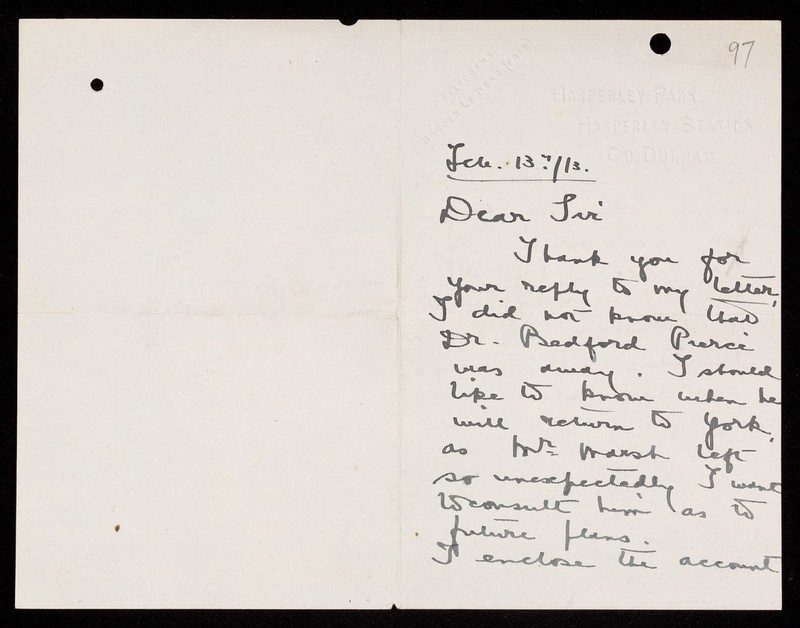 97
TELEGRAMS
HARPERLEY PARK,
HARPERLEY STATION
CO. DURHAM.
Feb. 13th/13.
Dear Sir
Thank you for
your reply to my letter,
I did not know that
Dr. Bedford Pierce
was away. I should
like to know when he
will return to York,
as Mr. Marsh left
so unexpectedly I want
to consult him as to
future plans.
I enclose the account